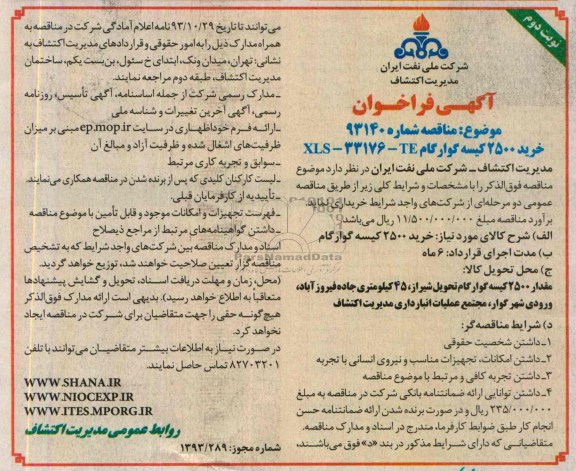 نوبت دوم
شرکت ملی نفت ایران
مدیریت اکتشاف
آگهی فراخوان
موضوع: مناقصه شماره ۹۳۱۴۰
خرید ۲۵۰۰ کیسه گوارگام XLS – ۳۳۱۷۶ – TE
مدیریت اکتشاف ــ شرکت ملی نفت ایران در نظر دارد موضوع
مناقصه فوق‌الذکر را با مشخصات و شرایط کلی زیر از طریق مناقصه
عمومی دو مرحله‌ای از شرکت‌های واجد شرایط خریداری نماید.
برآورد مناقصه مبلغ ۱۱/۵۰۰/۰۰۰/۰۰۰ ریال می‌باشد.
الف) شرح کالای مورد نیاز: خرید ۲۵۰۰ کیسه گوارگام
ب) مدت اجرای قرارداد: ۶ ماه
ج) محل تحویل کالا:
مقدار ۲۵۰۰ کیسه گوارگام تحویل شیراز، ۴۵ کیلومتری جاده فیروزآباد،
ورودی شهر گوار، مجتمع عملیات انبارداری مدیریت اکتشاف
د) شرایط مناقصه‌گر:
۱ــ داشتن شخصیت حقوقی
۲ــ داشتن امکانات، تجهیزات مناسب و نیروی انسانی با تجربه
۳ــ داشتن تجربه کافی و مرتبط با موضوع مناقصه
۴ــ داشتن توانایی ارائه ضمانتنامه بانکی شرکت در مناقصه به مبلغ
۲۳۵/۰۰۰/۰۰۰ ریال و در صورت برنده شدن ارائه ضمانتنامه حسن
انجام کار طبق ضوابط کارفرما، مندرج در اسناد و مدارک مناقصه.
متقاضیانی که دارای شرایط مذکور در بند «د» فوق می‌باشند،
می‌توانند تا تاریخ ۹۳/۱۰/۲۹ نامه اعلام آمادگی شرکت در مناقصه به
همراه مدارک ذیل را به امور حقوقی و قراردادهای مدیریت اکتشاف به
نشانی: تهران، میدان ونک، ابتدای خ سئول، بن‌بست یکم، ساختمان
مدیریت اکتشاف، طبقه دوم مراجعه نمایند.
ــ مدارک رسمی شرکت از جمله اساسنامه، آگهی تأسیس، روزنامه
رسمی، آگهی آخرین تغییرات و شناسه ملی
ــ ارائه فرم خوداظهاری در سایت ep.mop.ir مبنی بر میزان
ظرفیت‌های اشغال شده و ظرفیت آزاد و مبالغ آن
ــ سوابق و تجربه کاری مرتبط
ــ لیست کارکنان کلیدی که پس از برنده شدن در مناقصه همکاری می‌نمایند.
ــ تأییدیه از کارفرمایان قبلی.
ــ فهرست تجهیزات و امکانات موجود و قابل تأمین با موضوع مناقصه
ــ داشتن گواهینامه‌های مرتبط از مراجع ذیصلاح
اسناد و مدارک مناقصه بین شرکت‌های واجد شرایط که به تشخیص
مناقصه‌گزار تعیین صلاحیت خواهند شد، توزیع خواهد گردید.
(محل، زمان و مهلت دریافت اسناد، تحویل و گشایش پیشنهادها
متعاقباً به اطلاع خواهد رسید). بدیهی است ارائه مدارک فوق‌الذکر
هیچ‌گونه حقی را جهت متقاضیان برای شرکت در مناقصه ایجاد
نخواهد کرد.
در صورت نیاز به اطلاعات بیشتر متقاضیان می‌توانند با تلفن
۸۲۷۰۳۲۰۱ تماس حاصل نمایند.
WWW.SHANA.IR
WWW.NIOCEXP.IR
WWW.ITES.MPORG.IR
روابط عمومی مدیریت اکتشاف
شماره مجوز: ۱۳۹۳/۲۸۹
ParsNamadData